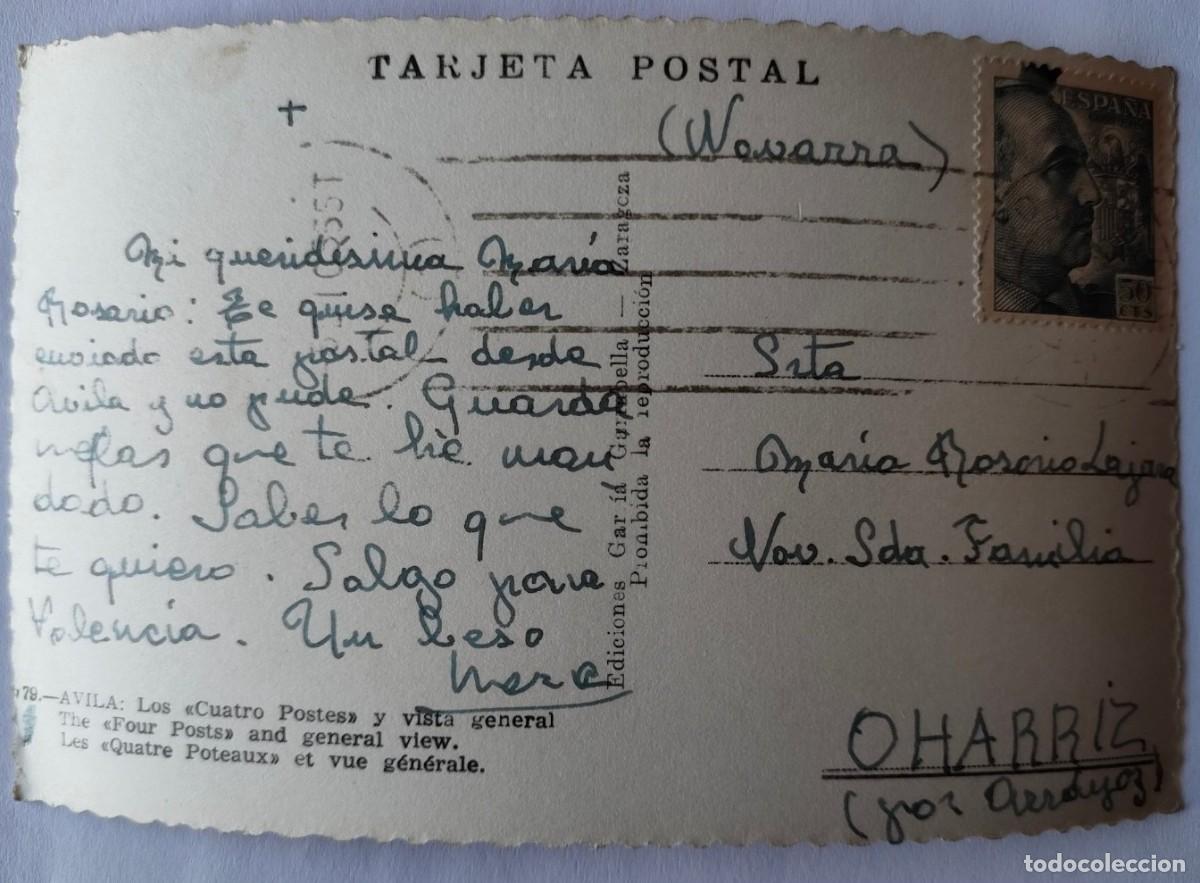 TARJETA POSTAL
+
(Navarra)
ESPAÑA
50
CTS
Mi queridísima María
Rosario: Te quise haber
enviado esta postal desde
Avila y no pude. Guarda
que te he man
dado. Sabes lo que
te quiero. Salgo para
Valencia. Un beso
Ediciones García Garrabella — Zaragoza
Prohibida la reproducción
Srta
María Rosario
Nov. Sda. Familia
OHARRIZ
(por Arrayoz)
79.—AVILA: Los «Cuatro Postes» y vista general
The «Four Posts» and general view.
Les «Quatre Poteaux» et vue générale.
todocoleccion